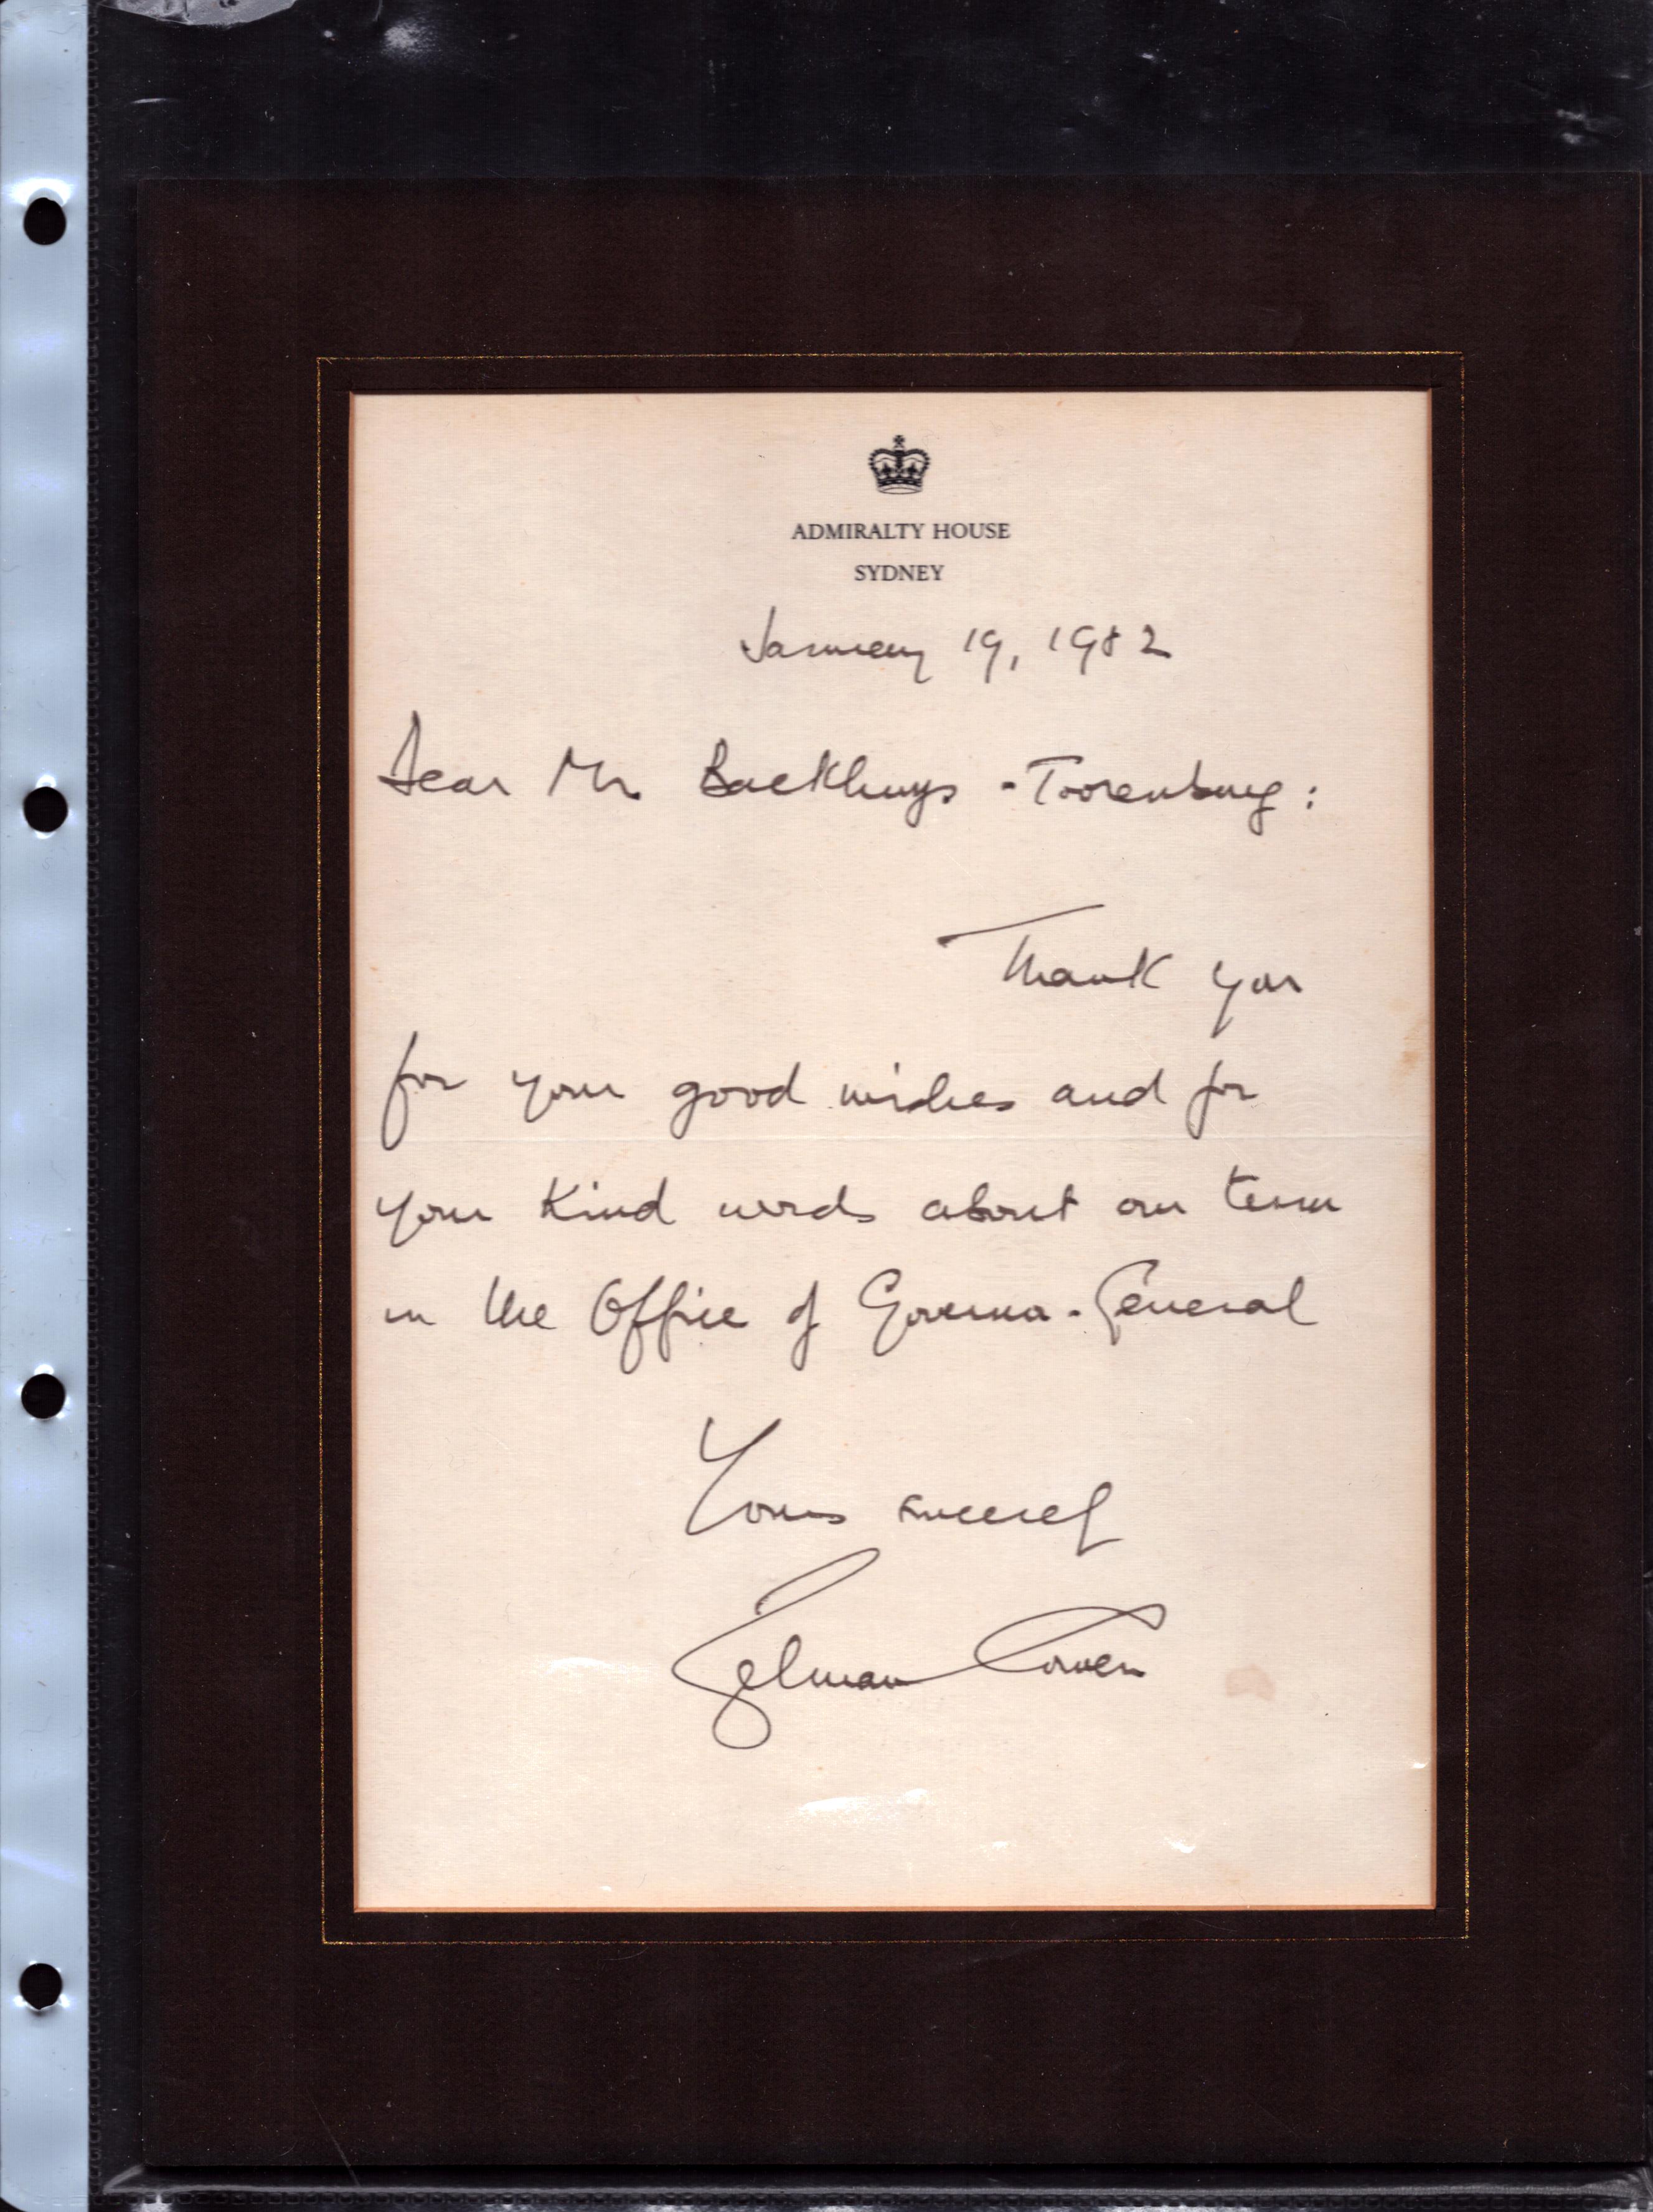 ADMIRALTY HOUSE
SYDNEY
January 19, 1982
Dear Mr Backhuys - Toorenburg:
Thank you
for your good wishes and for
your kind words about our term
in the Office of Governor-General
Yours sincerely
Zelman Cowen